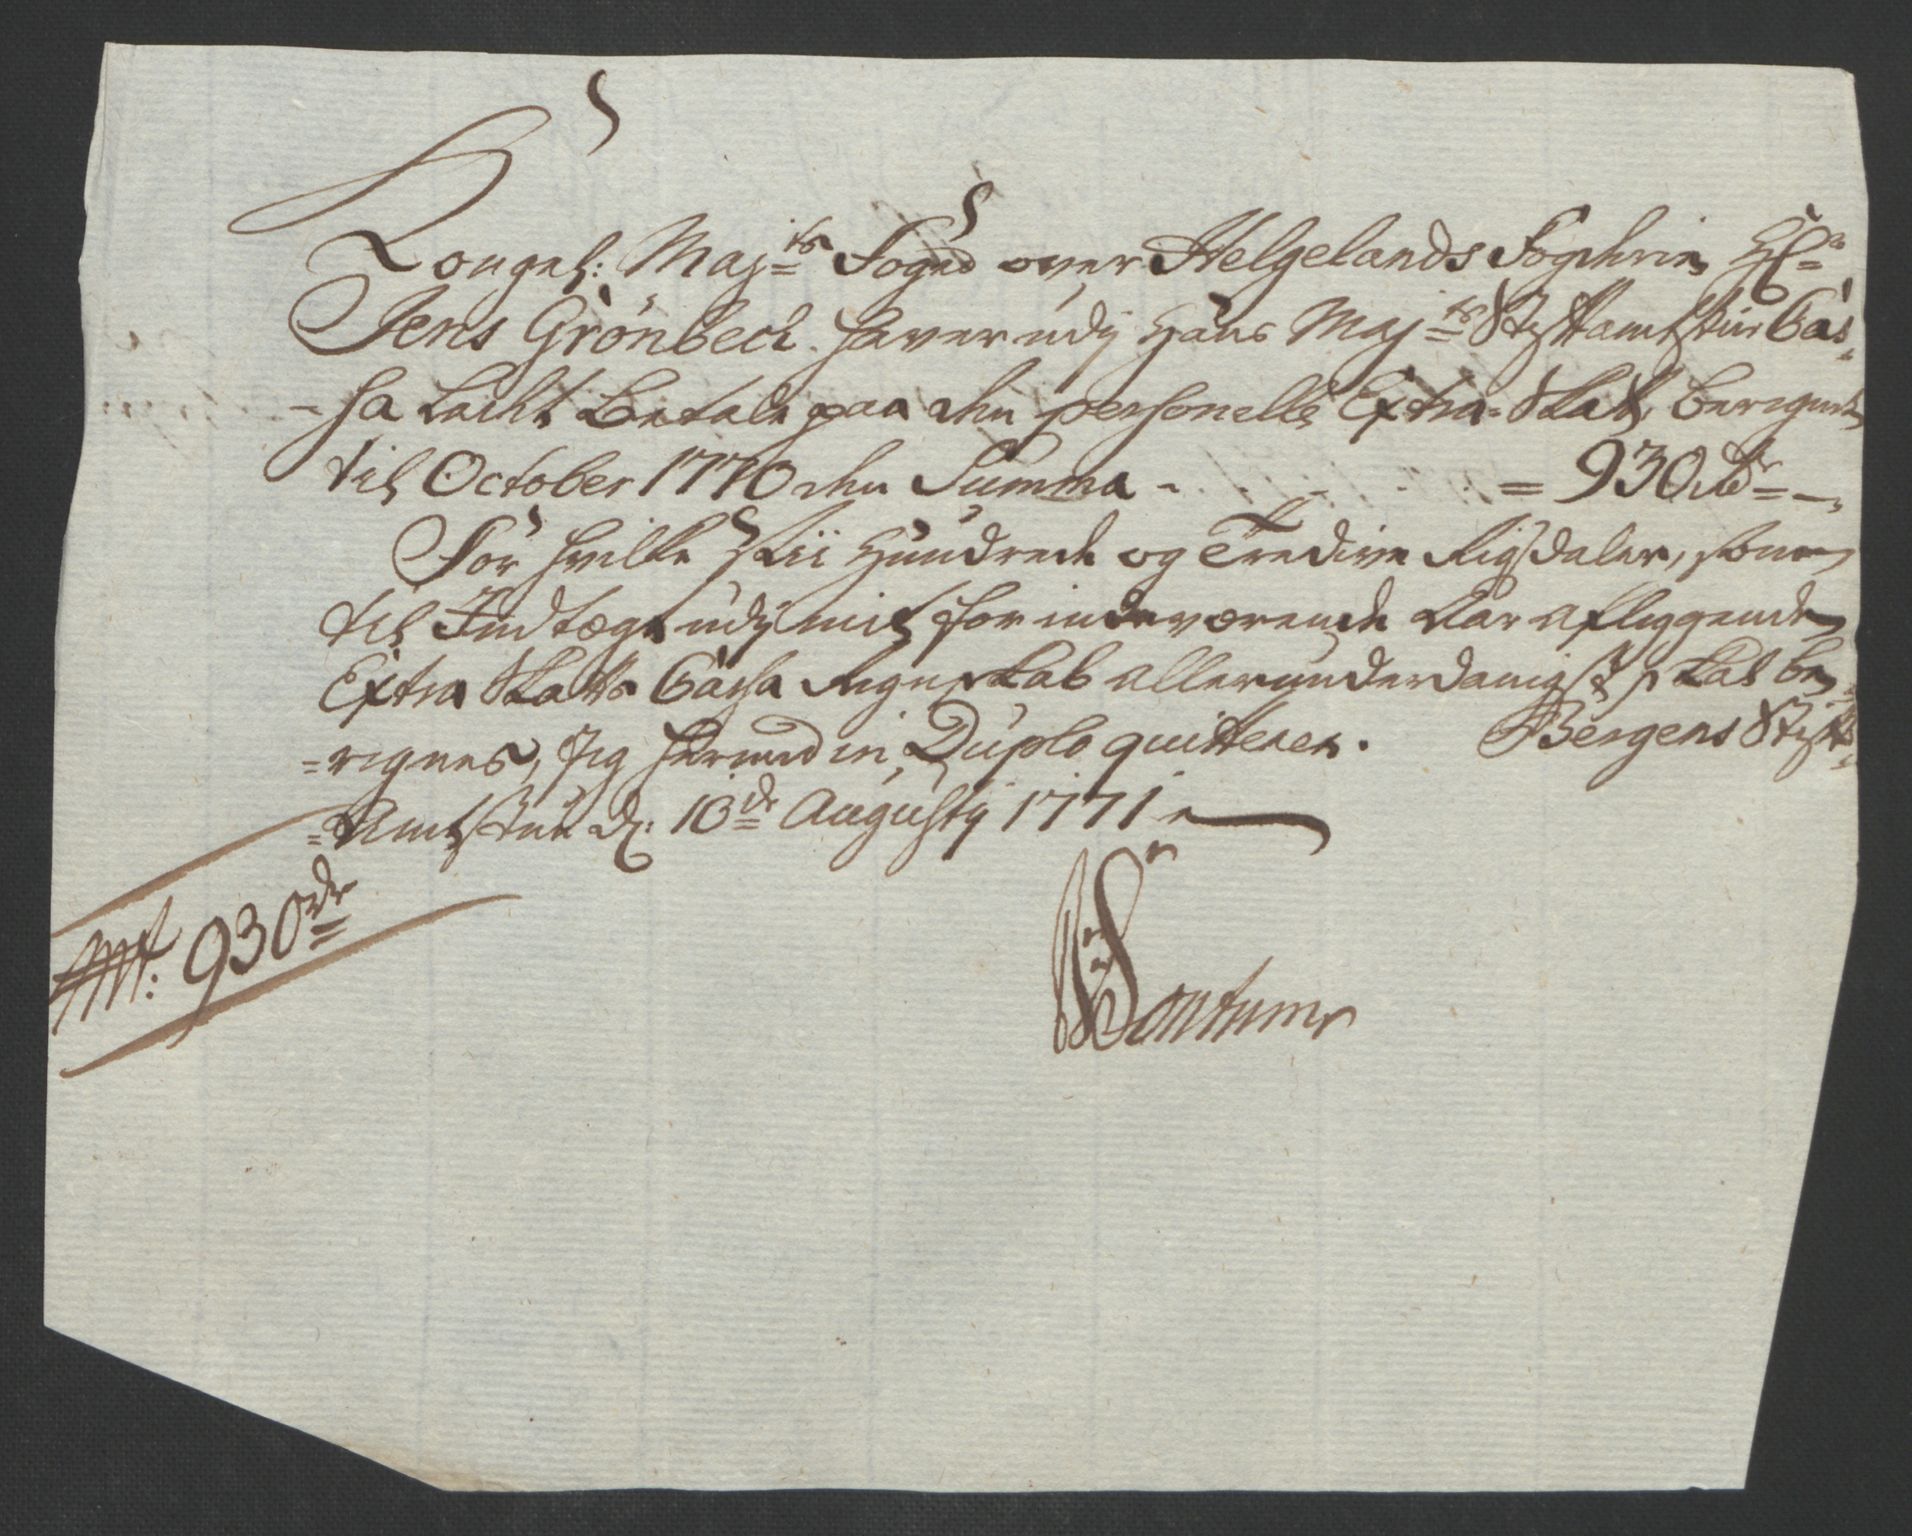 Kongel: Maj=ts Foged over Helgelands Fogderie, Hr=
Jens Grönbech haver udj Hans Maj=ts Stiftamtstue Cas=
=sa ladet betale paa den personelle Extra=Skatt, beregnet
til October 1770 den Summa - = 930 Rdr = -
For hvilke Nii Hundrede og Tredive Rigsdaler, som
til Indtægt udj mit for indeværende Aar aflæggende
Extra Skatts Cassa Regnskab allerunderdanigst skal be=
=regnes, Jeg hermed in Duplo quitterer. Bergens Stift=
=Amtstue d: 13de Augustij 1771
930 rdr